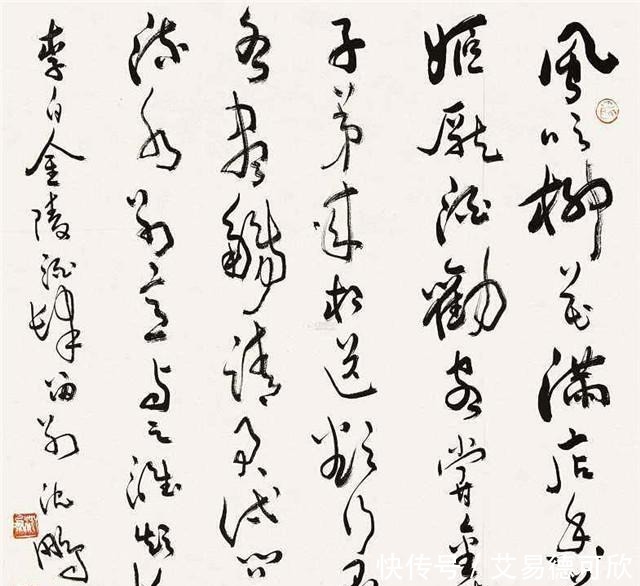 風吹柳花滿店香
姬壓酒勸客嘗金
子弟來相送欲行不
各盡觴請君試問
流水別意與之誰短長
李白金陵酒肆留別 沈鵬
快传号 / 艾易德可欣